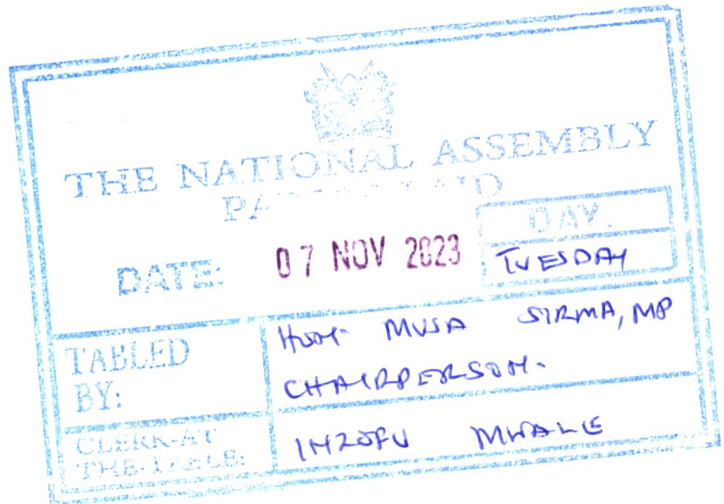 THE NATIONAL ASSEMBLY
DATE: 07 NOV 2023
DAY.
TUESDAY
TABLED BY:
HON. MUSA SIRMA, MP
CHAIRPERSON.
CLERK-AT
THE-TABLE:
INZOFU MWALE